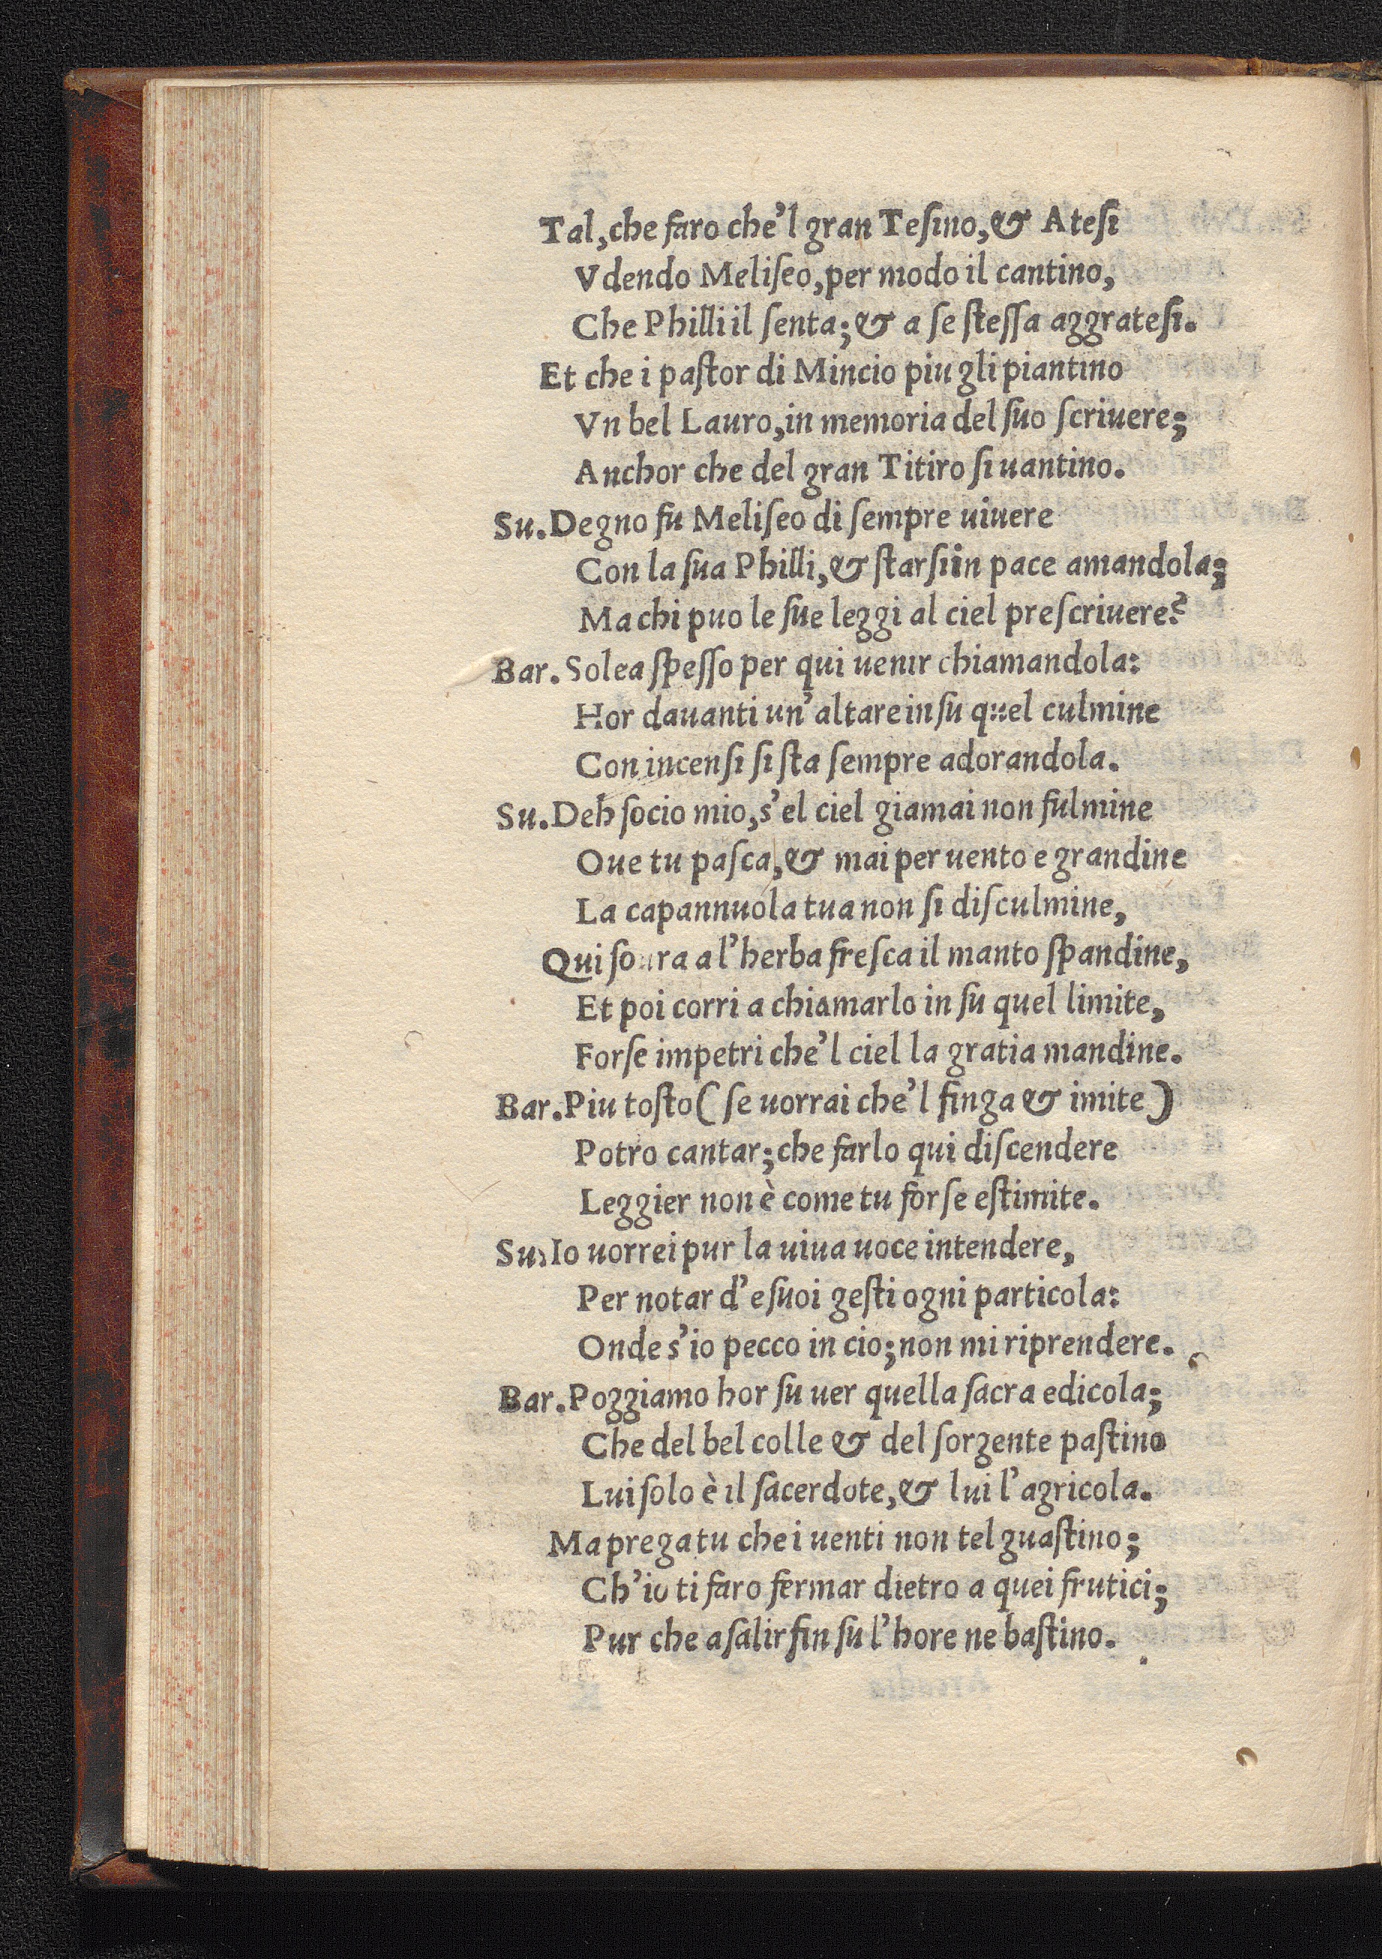 Tal, che faro che'l gran Tesino, & Atesi
Vdendo Meliseo, per modo il cantino,
Che Philli il senta; & a se stessa aggratesi.
Et che i pastor di Mincio piu gli piantino
Vn bel Lauro, in memoria del suo scriuere;
Anchor che del gran Titiro si uantino.
Su. Degno fu Meliseo di sempre uiuere
Con la sua Philli, & starsi in pace amandola;
Ma chi puo le sue leggi al ciel prescriuere?
Bar. Solea spesso per qui uenir chiamandola:
Hor dauanti un'altare in su quel culmine
Con incensi si sta sempre adorandola.
Su. Deh socio mio, s'el ciel giamai non fulmine
Oue tu pasca, & mai per uento e grandine
La capannuola tua non si disculmine,
Qui soura a l'herba fresca il manto spandine,
Et poi corri a chiamarlo in su quel limite,
Forse impetri che'l ciel la gratia mandine.
Bar. Piu tosto (se uorrai che'l finga & imite)
Potro cantar; che farlo qui discendere
Leggier non è come tu forse estimite.
Su. Io uorrei pur la uiua uoce intendere,
Per notar d'e suoi gesti ogni particola:
Onde s'io pecco in cio; non mi riprendere.
Bar. Poggiamo hor su uer quella sacra edicola;
Che del bel colle & del sorgente pastino
Lui solo è il sacerdote, & lui l'agricola.
Ma prega tu che i uenti non tel guastino;
Ch'io ti faro fermar dietro a quei frutici;
Pur che a salir fin su l'hore ne bastino.